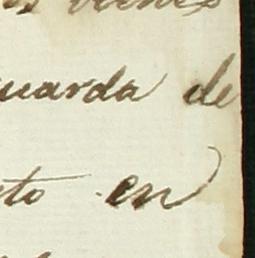 bienes
uarda de
to en